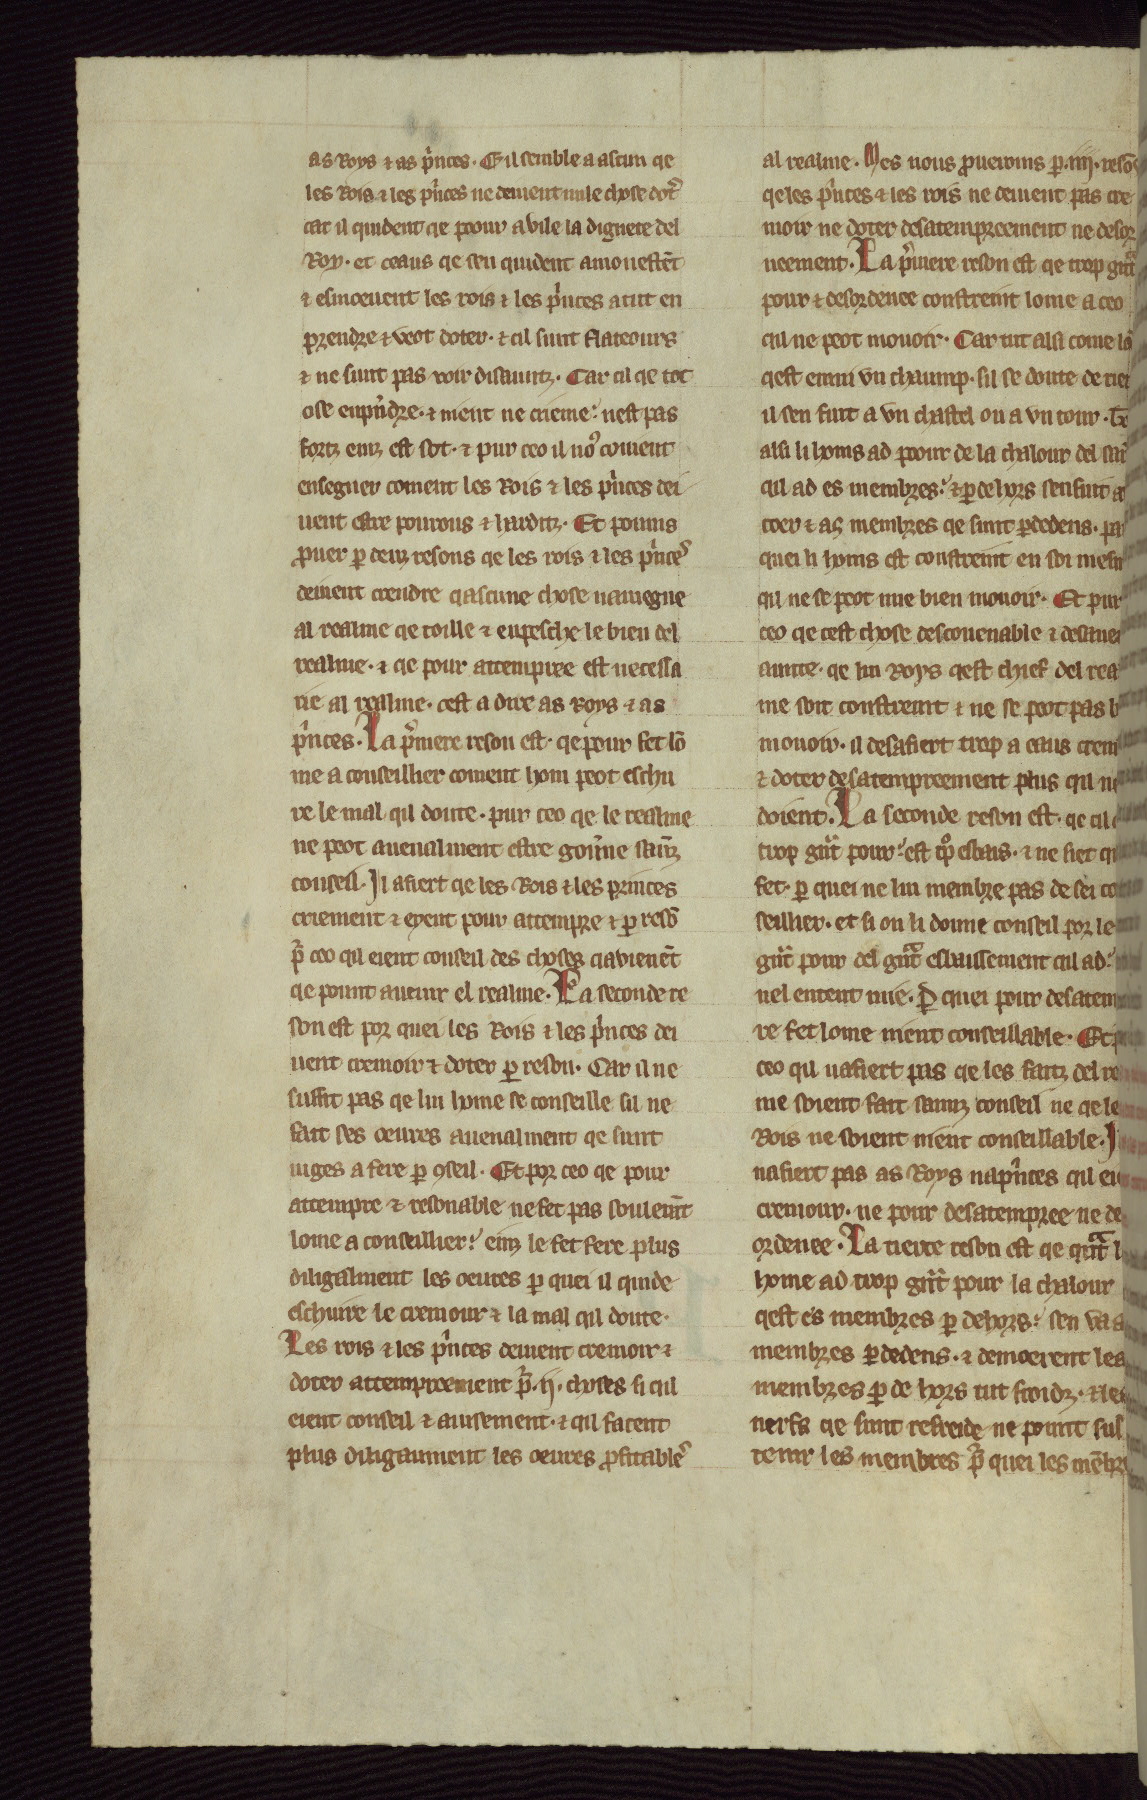 as Roys ⁊ as p̾nces. Et il semble a ascun qe
les Rois ⁊ les p̾nces ne deiuent nule chose dot̾
car il quident qe poour avile la dignete del
Roy. et ceaus qe seu quident amonestēt
⁊ esmoeuent les rois ⁊ les p̾nces a tut en
prendre ⁊ veot doter. ⁊ cil sunt flateours
⁊ ne sunt pas voir disauntz. Car cil qe tot
ose enp̾ndre. ⁊ nient ne crieme: nest pas
fortz einz est sot. ⁊ pur ceo il no᷒ couient
enseigner coment les Rois ⁊ les p̾nces dei
uent estre pourous ⁊ harditz. Et poums
ꝓuer ꝑ deuz resons qe les rois ⁊ les p̾nces
deiuent crendre qascune chose nauiegne
al realme qe toille ⁊ enpesche le bien del
realme. ⁊ qe pour attempree est necessa
rie al realme. cest a dire as Roys ⁊ as
p̾nces. La p̾miere reson est. qe pour fet lo
me a conseillier coment hom peot eschu
re le mal qil doute. pur ceo qe le realme
ne peot auenalment estre gou̾ne saūz
conseil. Il afiert qe les Rois ⁊ les princes
criement ⁊ eyent pour attempre ⁊ ꝑ resō
p̾ ceo qil eient conseil des choses qavienēt
qe pount auenir el realme. La seconde re
son est por quei les Rois ⁊ les p̾nces dei
uent cremoir ⁊ doter ꝑ reson. Car il ne
suffit pas qe lui home se conseille sil ne
fait ses oeures auenalment qe sunt
iuges a fere ꝑ ꝯseil. Et por ceo qe pour
attempre ⁊ resonable ne fet pas soulemt̄
lome a conseillier: einz le fet fere plus
diligalment les oeures ꝑ quei il quide
eschuire le cremour ⁊ la mal qil doute.
Les rois ⁊ les p̾nces deiuent cremoir ⁊
doter attempreement p̾ .ij. choses si qil
eient conseil ⁊ auisement. ⁊ qil facent
plus diligaument les oeures ꝓfitables
al realme. Mes nous ꝓuerons ꝑ .iiij. resō
qe les p̾nces ⁊ les rois ne deiuent pas cre
moir ne doter desatempreement ne desor
neement. La p̾miere reson est qe trop gᷓnt
pour ⁊ desordenee constreint lome a ceo
qil ne peot mouoir. Car tut alsi come lō
qest enmi vn chaump. sil se doute de rien
il sen fuit a vn chastel ou a vn tour.
alsi li homs ad poour de la chalour del
qil ad es membres: ⁊ ꝑ dehors senfuit a
coer ⁊ as membres qe sunt ꝑ dedens. pa
quei li homs est constreint en soi mesm
qil ne se peot mie bien mouoir. Et pur
ceo qe cest chose descouenable ⁊ desaue
aunte. qe lui Roys qest chief del rea
me soit constreint ⁊ ne se peot pas b
mouoir. il desafiert trop a ceaus crem
⁊ doter desatempreement plus qil ne
doient. La seconde reson est. qe cil
trop gᷓnt pour: est tp̄ esbais. ⁊ ne siet qi
fet. ꝑ quei ne lui membre pas de sei co
seillier. et si on li doune conseil por le
gᷓnt pour del gᷓnt esbaissement qil ad:
nel entent mie. Ꝑ quei pour desatem
re fet lome nient conseillable. Et p
ceo qil nafiert pas qe les faitz del re
me soient fait saunz conseil ne qe le
Rois ne soient nient conseillable. I
nafiert pas as Roys nap̾nces qil ei
cremour. ne pour desatempree ne de
ordenee. La tierce reson est qe qᷓnt l
home ad trop gᷓnt pour la chalour
qest es membres ꝑ dehors: sen va a
membres ꝑ dedens. ⁊ demoerent les
membres ꝑ de hors tut froidz. ⁊ le
nerfs qe sunt refreide ne pount sus
tenir les membres p̾ quei les mēbr